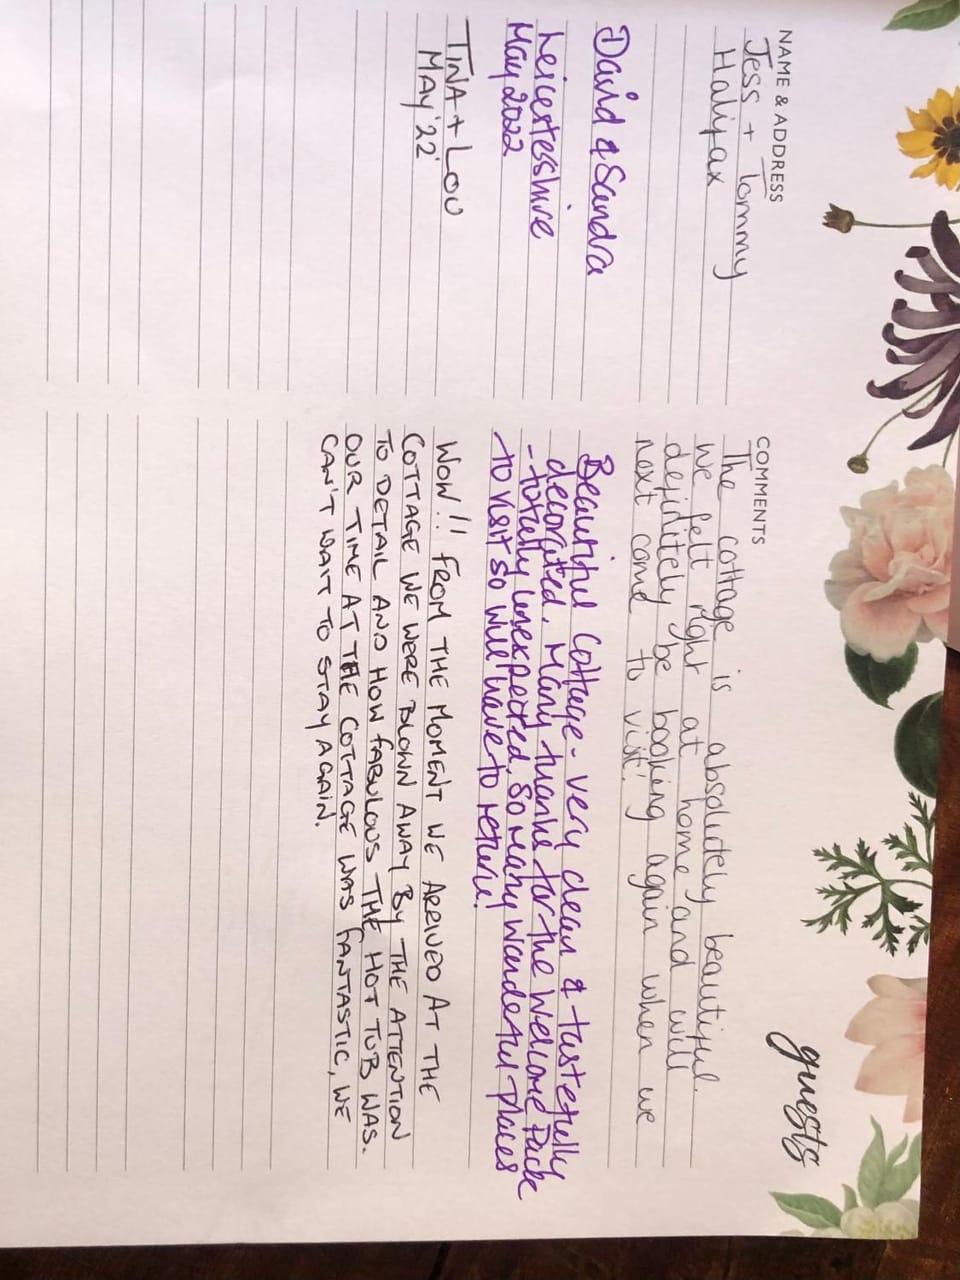 guests
NAME & ADDRESS
Jess + Tommy
Halifax
COMMENTS
The cottage is absolutely beautiful.
We felt right at home and will
definitely be booking again when we
next come to visit!
David & Sandra
Leicestesshire
May 2022
Beautiful Cottage - very clean & tastefully
decorated. Many thanks for the Welcome Pack
- totally unexpected. So many wonderful places
to visit so will have to return!
TINA + LOU
MAY '22
WOW!! FROM THE MOMENT WE ARRIVED AT THE
COTTAGE WE WERE BLOWN AWAY BY THE ATTENTION
TO DETAIL AND HOW FABULOUS THE HOT TUB WAS.
OUR TIME AT THE COTTAGE WAS FANTASTIC, WE
CAN'T WAIT TO STAY AGAIN.